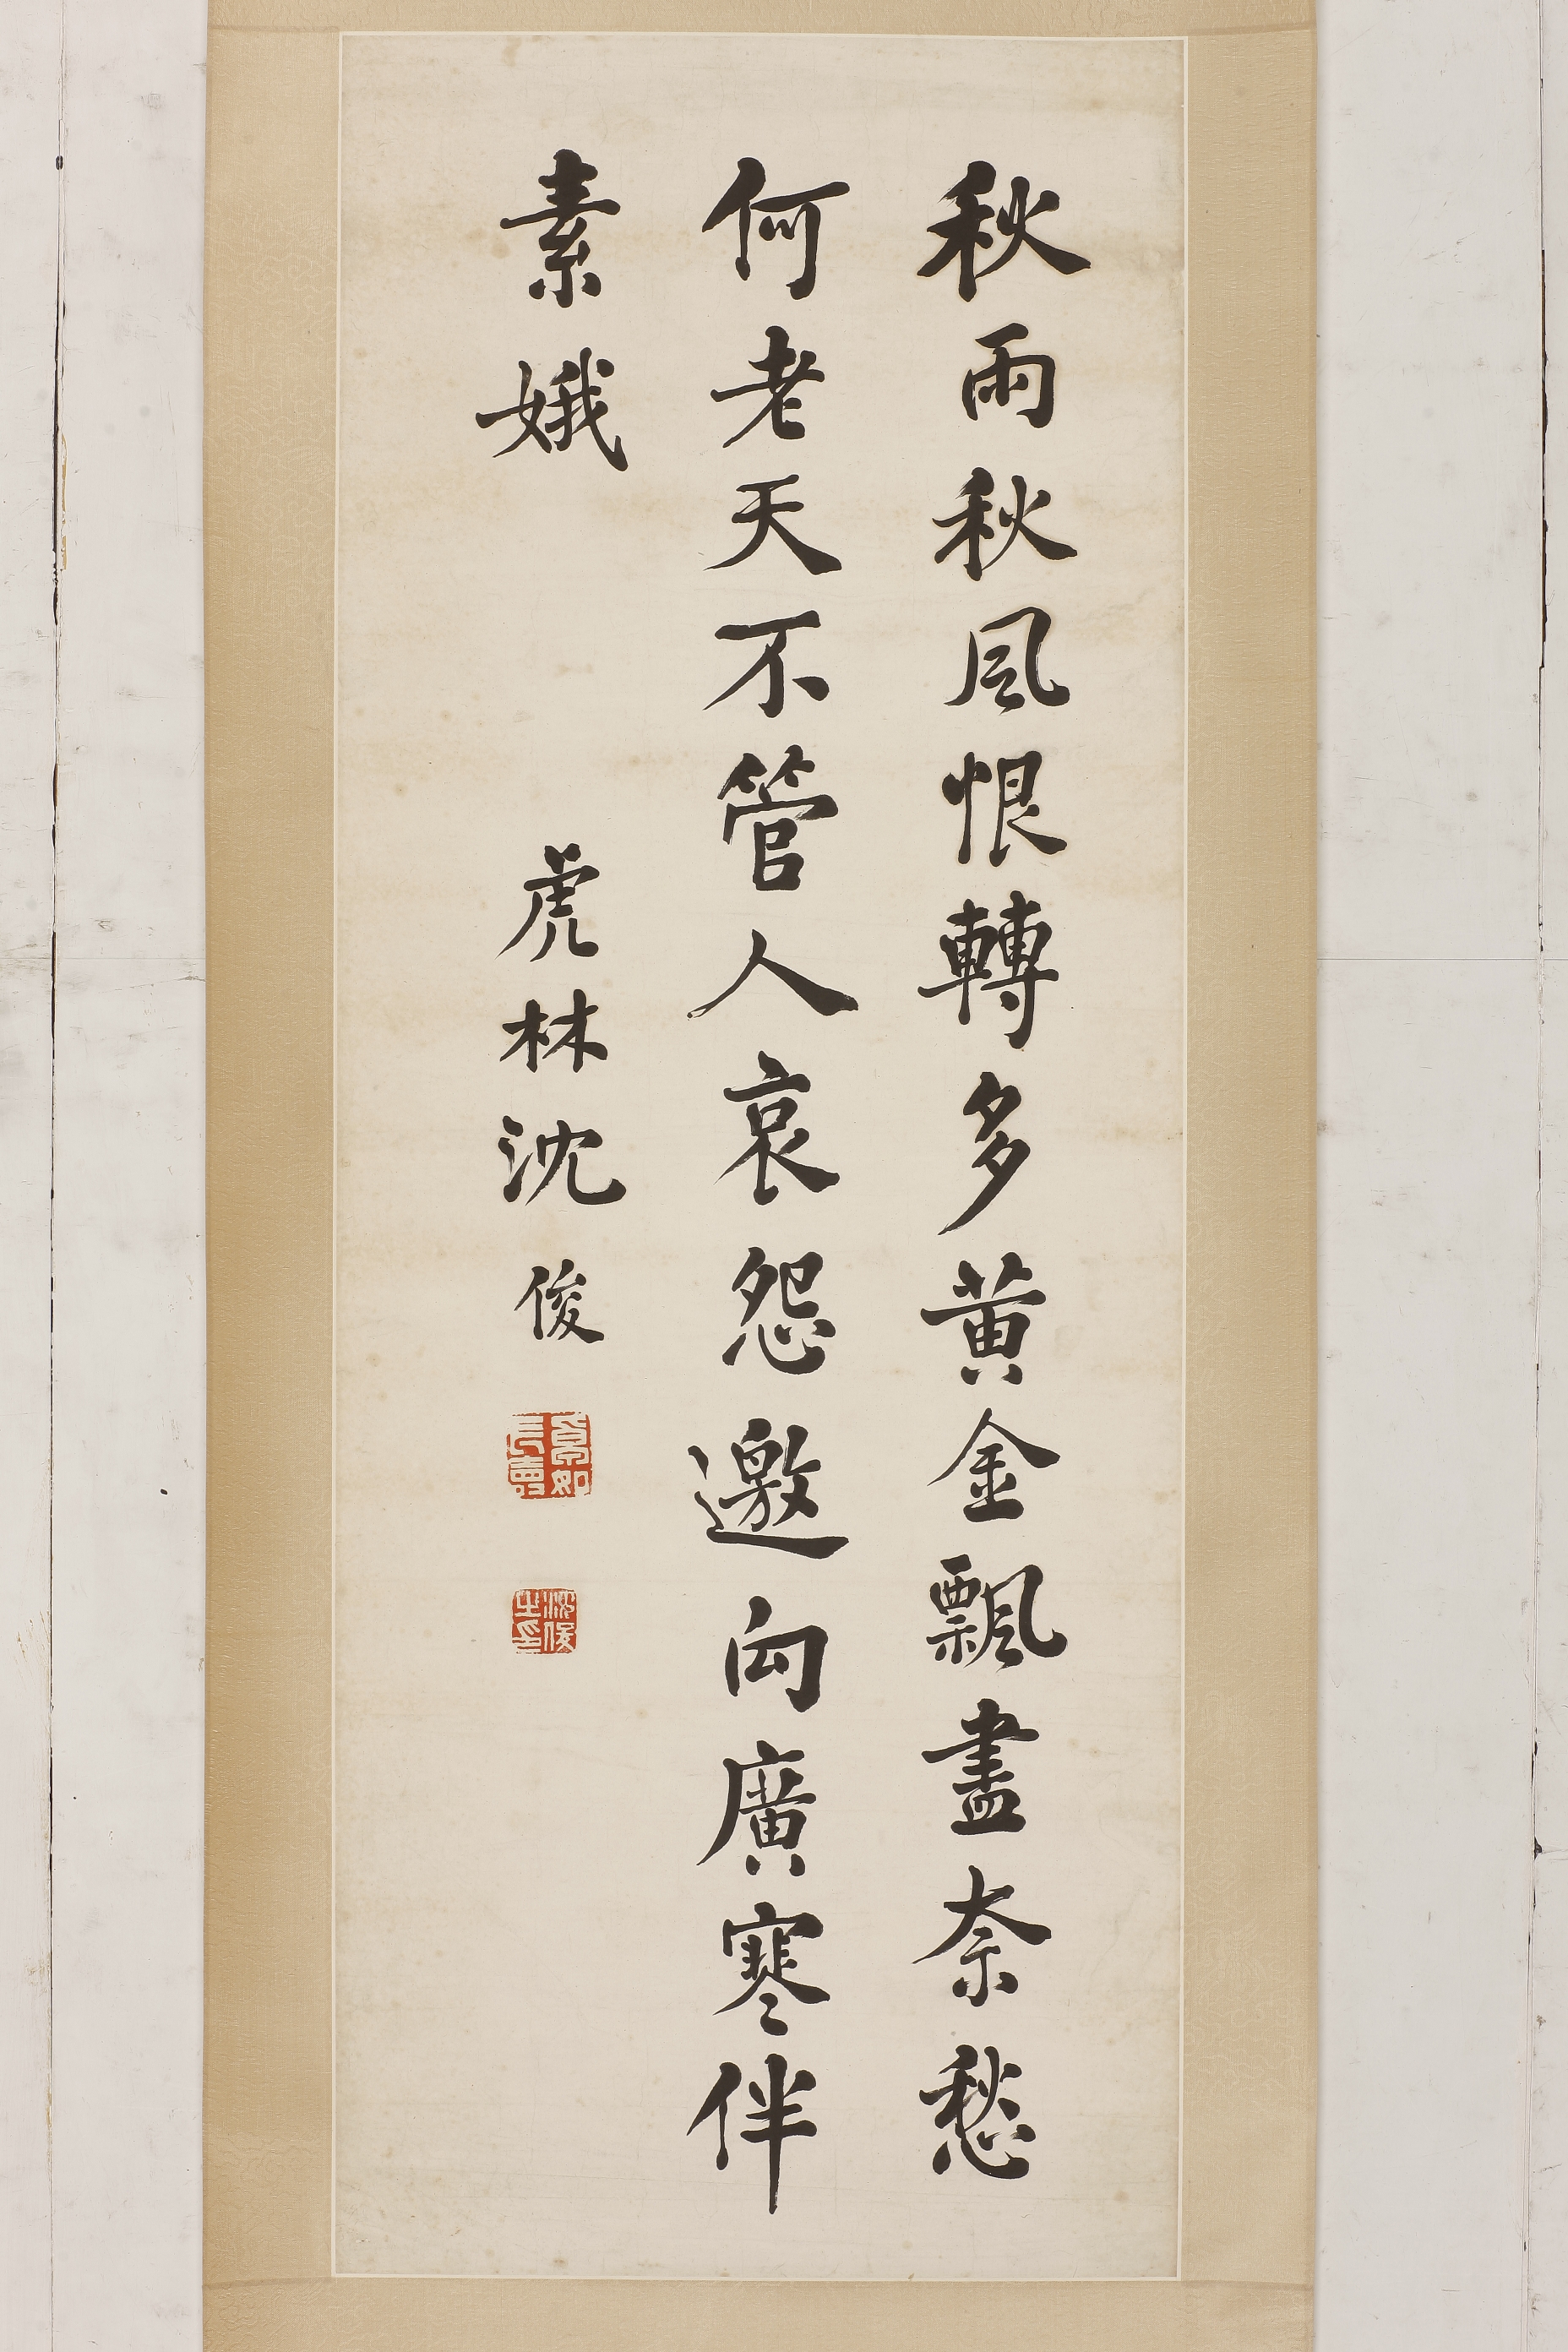 秋雨秋風恨轉多黃金飄盡奈愁
何老天不管人哀怨邀向廣寒伴
素娥
虎林沈俊
沈俊之印